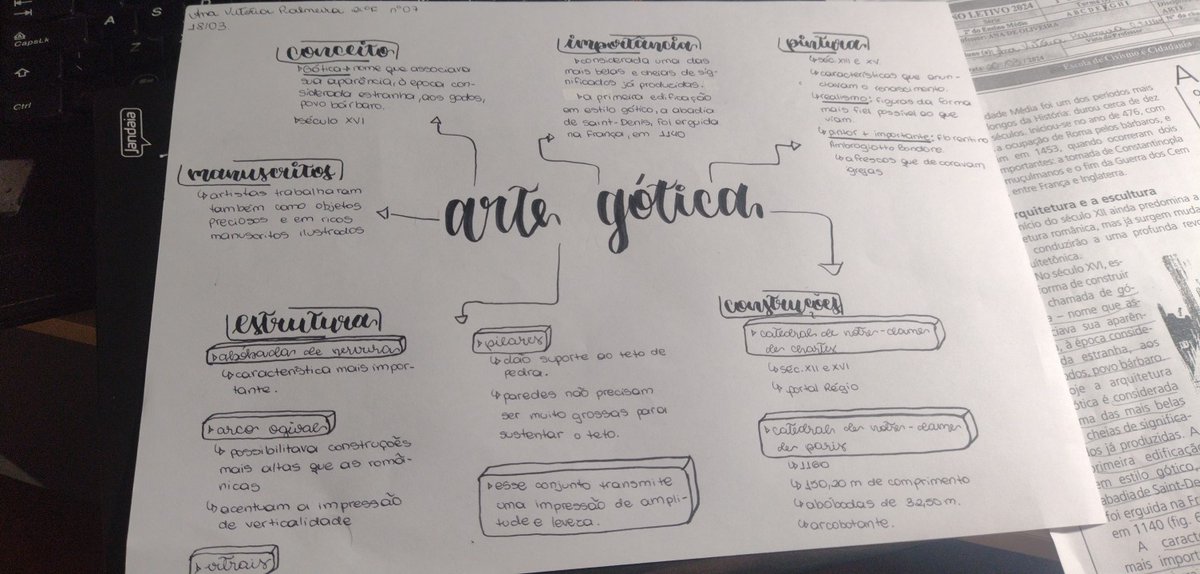 Ana Vitória Palmeira 2ºE nº07
18/03.
conceito
gótica → nome que associava
sua aparência, à época con-
siderada estranha, aos godos,
povo bárbaro.
século XVI
importância
considerada uma das
mais belas e cheias de sig-
nificados já produzidas.
a primeira edificação
em estilo gótico, a abadia
de saint-Denis, foi erguida
na França, em 1140
pintura
séc. XII e XV.
características que anun-
ciavam o renascimento.
realismo: figuras da forma
mais fiel possível ao que
viam.
pintor + importante: florentino
Ambrogiotto Bondone.
afrescos que decoravam
igrejas
manuscritos
artistas trabalharam
também como objetos
preciosos e em ricos
manuscritos ilustrados
arte gótica
estrutura
abóbadas de nervura
característica mais impor-
tante.
arco ogival
possibilitava construções
mais altas que as romê-
nicas
acentuam a impressão
de verticalidade
vitrais
pilares
dão suporte ao teto de
pedra.
paredes não precisam
ser muito grossas para
sustentar o teto.
esse conjunto transmite
uma impressão de ampli-
tude e leveza.
construções
catedral de notre-dame
de chartes
séc. XII e XVI
portal Régio
catedral de notre-dame
de paris
1160
150,20 m de comprimento
abóbodas de 32,50 m.
arcobotante.
CapsLk
A
S
Ctrl
jandaia
NO LETIVO 2024
Série
2ª do Ensino Médio
ANA DE OLIVEIRA
A B C D E F G H I
ARTE
Escola de Civismo e Cidadania
A
dade Média foi um dos períodos mais
longos da História, durou cerca de dez
séculos. Iniciou-se no ano de 476, com
a ocupação de Roma pelos bárbaros, e
im em 1453, quando ocorreram dois
mportantes: a tomada de Constantinopla
muçulmanos e o fim da Guerra dos Cem
entre França e Inglaterra.
rquitetura e a escultura
início do século XII ainda predomina a
etura românica, mas já surgem
conduzirão a uma profunda
uitetônica.
No século XVI, es-
forma de construir
chamada de gó-
a – nome que as-
ciava sua aparên-
, à época conside-
da estranha, aos
odos, povo bárbaro.
oje a arquitetura
ótica é considerada
ma das mais belas
cheias de significa-
os já produzidas. A
primeira edificação
em estilo gótico
abadia de Saint-Den
foi erguida na Fra
em 1140 (fig.
A caracte
mais import